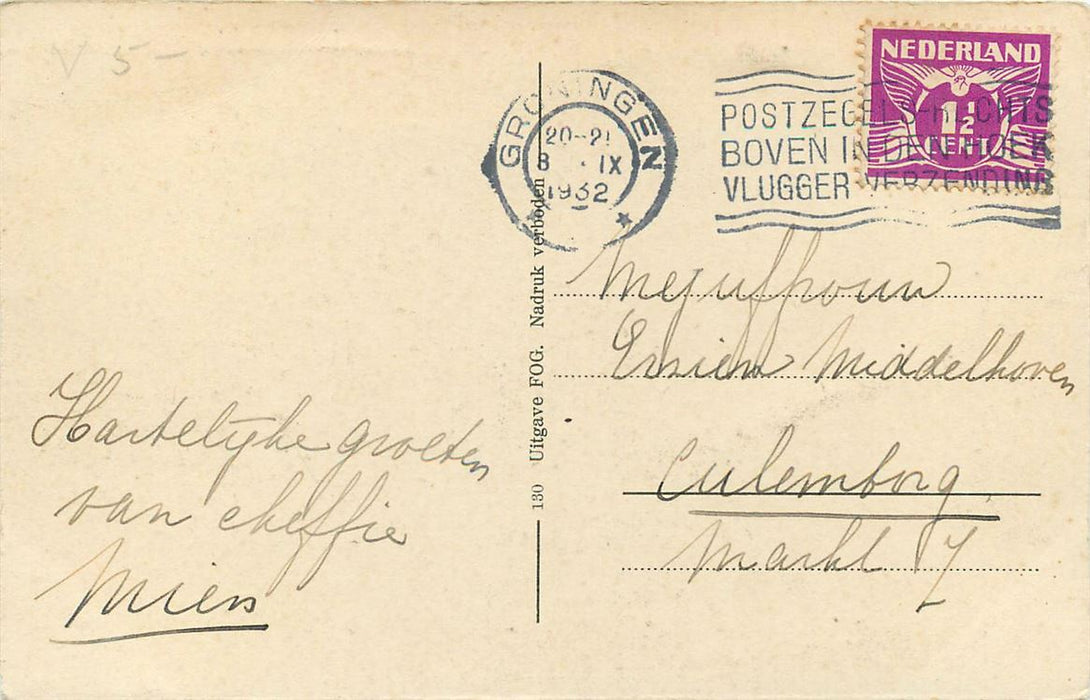 V 5-
GRONINGEN
20-21
8 IX
1932
POSTZEGELS RECHTS
BOVEN IN DEN HOEK
VLUGGER VERZENDING
NEDERLAND
1½
CENT
Hartelijke groeten
van cheffie
Mien
130 Uitgave FOG. Nadruk verboden
Mejufrouw
Ensien Middelhoven
Culemborg
Markt 7